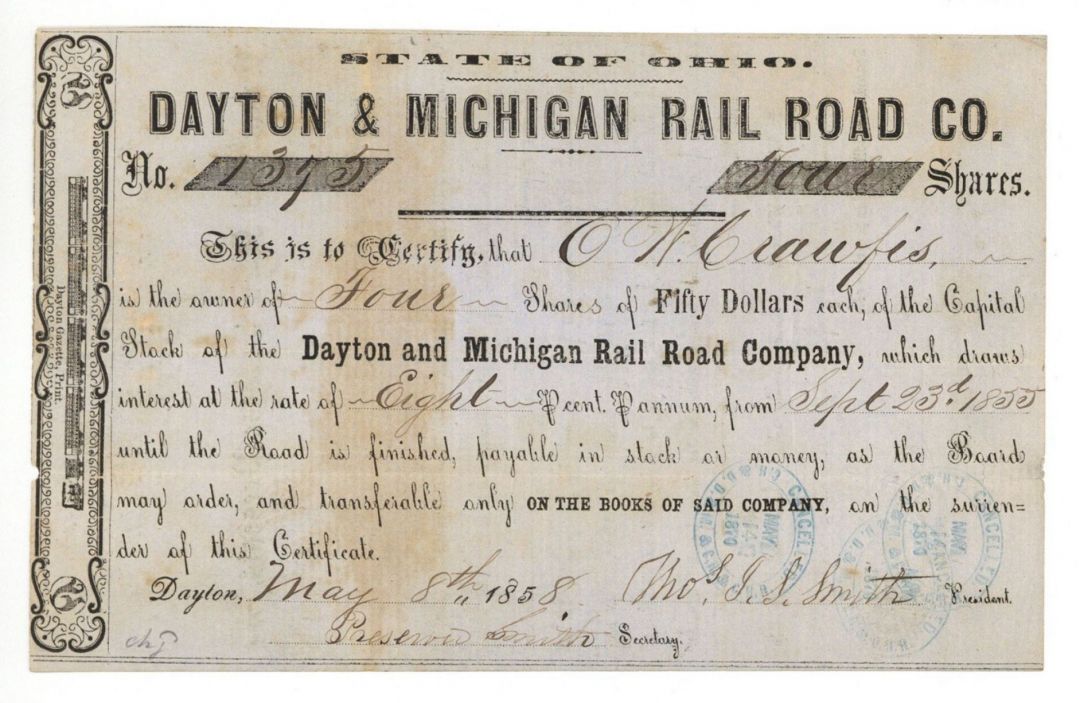 STATE OF OHIO.
DAYTON & MICHIGAN RAIL ROAD CO.
No. 1375 Four Shares.
This is to Certify, that C W. Crawfis,
is the owner of Four Shares of Fifty Dollars each, of the Capital
Stock of the Dayton and Michigan Rail Road Company, which draws
interest at the rate of Eight P cent. P annum, from Sept 23d 1855
until the Road is finished, payable in stock or money, as the Board
may order, and transferable only ON THE BOOKS OF SAID COMPANY, on the surren=
der of this Certificate.
Dayton, May 8th 1858. Thos. J. S. Smith President.
Preserved Smith Secretary.
Dayton Gazette, Print.
CANCEL
MAY
14
1870
CANCEL'D
MAY
14
1870